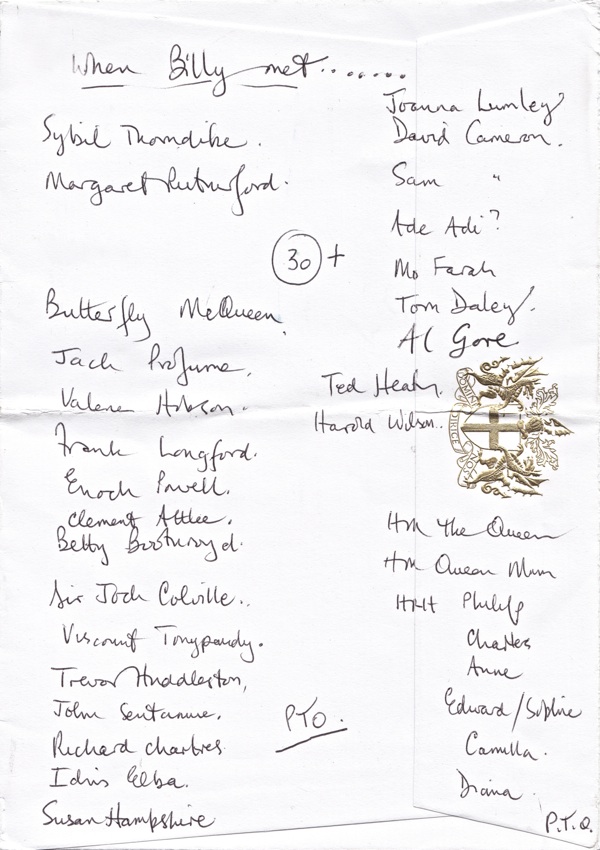 When Billy met.......
Sybil Thorndike.
Margaret Rutherford.
30 +
Butterfly McQueen.
Jack Profume.
Valerie Hobson.
Frank Longford.
Enoch Powell.
Clement Attlee.
Betty Boothroyd.
Sir Jock Colville.
Viscount Tonypandy.
Trevor Huddleston,
John Sentamu.
Richard Chartres.
Idris Elba.
Susan Hampshire
PTO.
Joanna Lumley?
David Cameron.
Sam "
Ade Adi?
Mo Farah
Tom Daley.
Al Gore
Ted Heath.
Harold Wilson.
DOMINE DIRIGE NOS
HM The Queen
HM Queen Mum
HRH Philip
Charles
Anne
Edward/Sophie
Camilla.
Diana.
P.T.O.